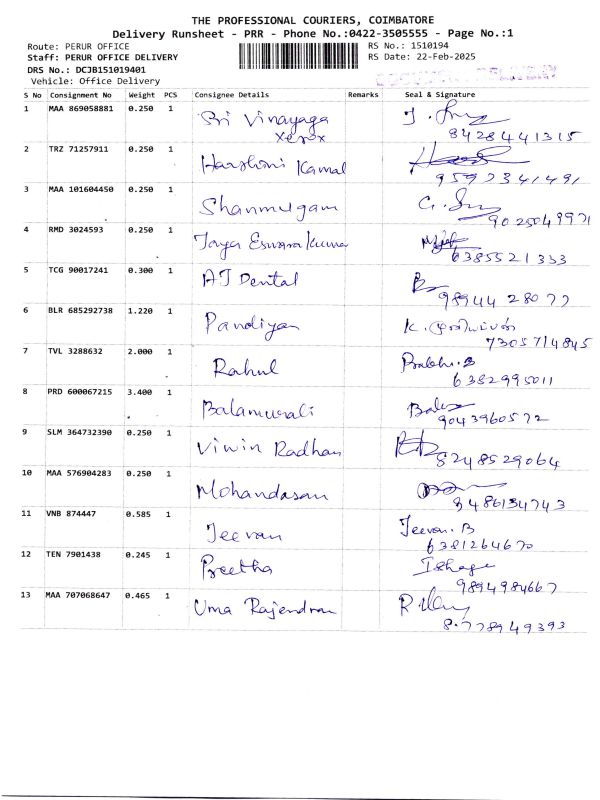 THE PROFESSIONAL COURIERS, COIMBATORE
Delivery Runsheet - PRR - Phone No.:0422-3505555 - Page No.:1
Route: PERUR OFFICE RS No.: 1510194
Staff: PERUR OFFICE DELIVERY RS Date: 22-Feb-2025
DRS No.: DCJB151019401
Vehicle: Office Delivery
S No Consignment No Weight PCS Consignee Details Remarks Seal & Signature
1 MAA 869058881 0.250 1 Sri Vinayaga
Xerox 8428441315
2 TRZ 71257911 0.250 1 Harshini Kamal
9597341491
3 MAA 101604450 0.250 1 Shanmugam
9025049971
4 RMD 3024593 0.250 1 Jaya Eswara Kumar
6385521333
5 TCG 90017241 0.300 1 AJ Dental
98944 28077
6 BLR 685292738 1.220 1 Pandiyan K. முனியப்பன்
7305714845
7 TVL 3288632 2.000 1 Rahul Prabhu.B
6382995011
8 PRD 600067215 3.400 1 Balamurali Bala
9043960572
9 SLM 364732390 0.250 1 Viwin Radhan
8248529064
10 MAA 576904283 0.250 1 Mohandasan
8486134743
11 VNB 874447 0.585 1 Jeevan Jeevan.B
6381264670
12 TEN 7901438 0.245 1 Preetha
9894984667
13 MAA 707068647 0.465 1 Uma Rajendran
8778949393